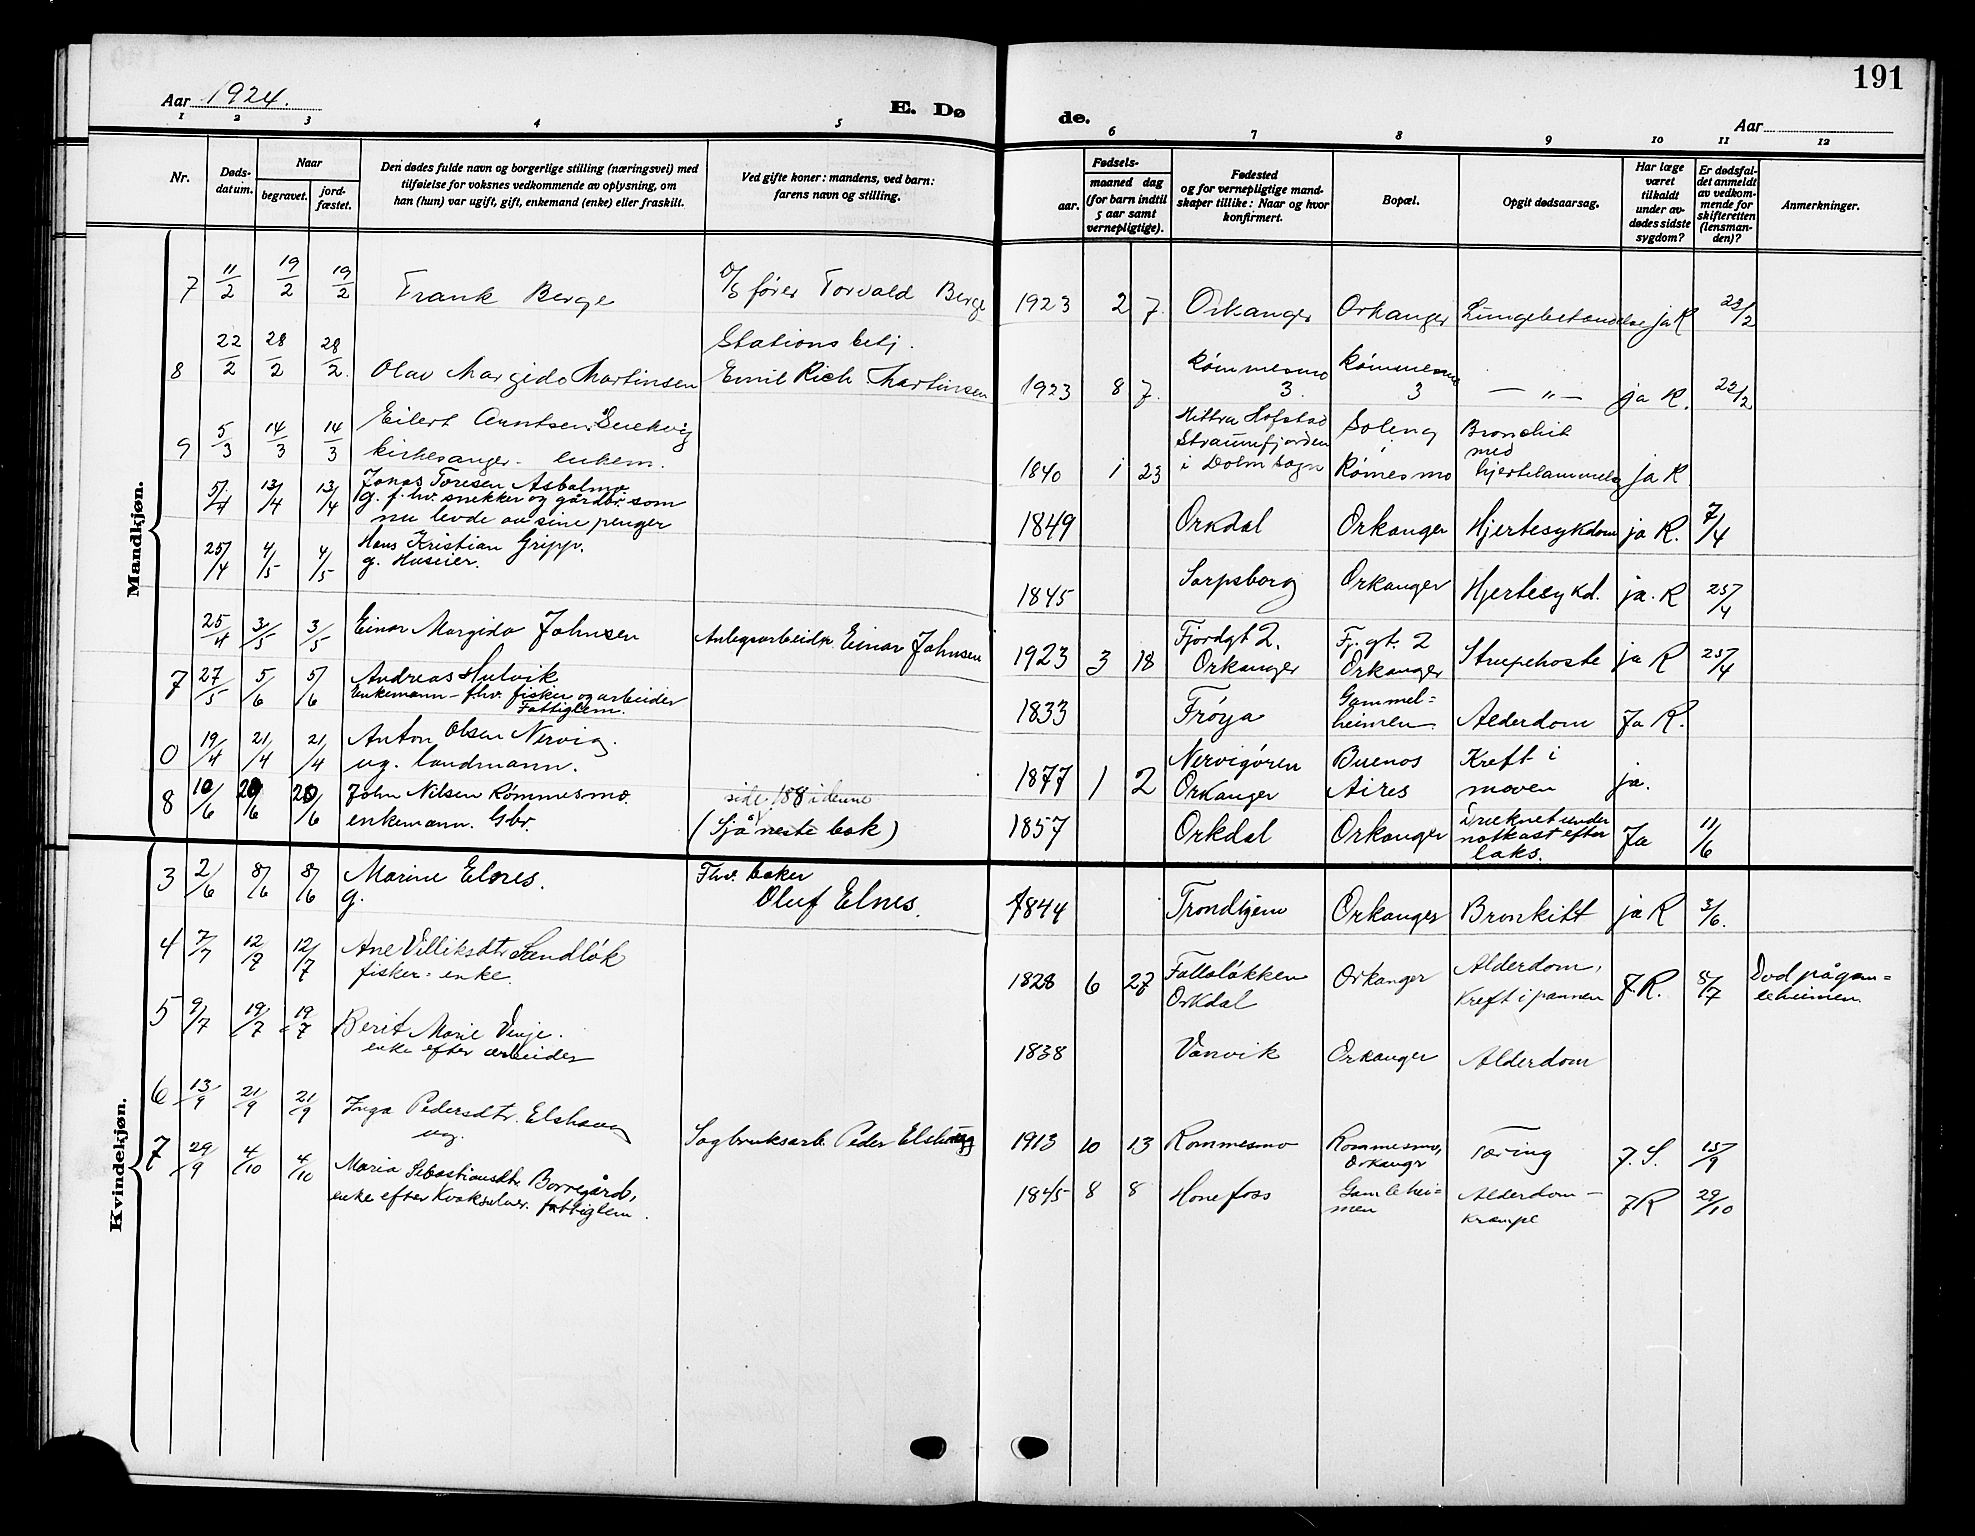 191
Aar 1924.
E. Dø
de.
Aar
1 2 3 4 5 6 7 8 9 10 11 12
Nr.
Døds-
datum.
Naar
begravet.
jord-
fæstet.
Den dødes fulde navn og borgerlige stilling (næringsvei) med
tilføielse for voksnes vedkommende av oplysning, om
han (hun) var ugift, gift, enkemand (enke) eller fraskilt.
Ved gifte koner: mandens, ved barn:
farens navn og stilling.
Fødsels-
aar.
maaned dag
(for barn indtil
5 aar samt
vernepligtige).
Fødested
og for vernepligtige mand-
skaper tillike: Naar og hvor
konfirmert.
Bopæl.
Opgit dødsaarsag.
Har læge
været
tilkaldt
under av-
dødes sidste
sygdom?
Er dødsfal-
det anmeldt
av vedkom-
mende for
skifteretten
(lensman-
den)?
Anmerkninger.
Mandkjøn.
7 11/2 19/2 19/2 Frank Berge fører Torvald Berge 1923 2 7. Orkanger Orkanger Lungebetændelse ja R 22/2
Stationsbetj.
8 22/2 28/2 28/2. Olav Margido Martinsen Emil Rich Martinsen 1923 8 7. Rømmesmo 3. Rømmesmo 3 — " — ja R. 22/2
9 5/3 14/3 14/3 Eilert Arntsen
kirkesanger - enkem. 1840 1 23 Hittra Hofstad
Straumfjorden
i Dolm sogn Soleng
Rømesmo Bronchit
med
hjertelammelse ja R
5/4 13/4 13/4 Jonas Toresen Asbølmo
g. f. hv. snekker og gårdbr. som
nu levde av sine penger 1849 Orkdal Orkanger Hjertesykdom ja R. 7/4
25/4 4/5 4/5 Hans Kristian Gripp.
g. Huseier. 1845 Sarpsborg Orkanger Hjertesykd. ja. R 25/4
25/4 3/5 3/5 Einar Margido Johnsen Anlegsarbeider Einar Johnsen 1923 3 18 Fjordgt 2.
Orkanger Fj. gt. 2
Orkanger Strupehoste ja R 25/4
7 27/5 5/6 5/6 Andreas Hulvik
Enkemann - fhv. fisker og arbeider
Fattiglem. 1833 Frøya Gammel=
heimen Alderdom Ja R.
0 19/4 21/4 21/4 Anton Olsen Nervig.
ug. landmann. 1877 1 2 Nervigøren
Orkanger Buenos
Aires Kreft i
maven ja.
8 10/6 20/6 20/6 John Nilsen Rømmesmo.
enkemann. Gbr. side 188 i denne
(Sjå neste bok) 1857 Orkdal Orkanger Druknet under
notkast efter
laks. Ja 11/6
Kvindekjøn.
3 2/6 8/6 8/6 Marine Elnes.
g. Fhv. baker
Oluf Elnes. 1844 Trondhjem Orkanger Bronkitt ja R 3/6.
4 7/7 12/7 12/7 Ane Villiksdtr Sandløk
fisker-enke. 1828 6 27 Follaløkken
Orkdal Orkanger Alderdom,
Kreft i pannen J. R. 8/7 Død på gam=
leheimen.
5 9/7 19/7 19/7 Berit Marie Vinje.
enke efter arbeider 1838 Vanvik Orkanger Alderdom
6 13/9 21/9 21/9 Inga Pedersdtr. Elshaug
ug. Sagbruksarb. Peder Elshaug 1913 10 13 Rommesmo Rommesmo,
Orkangr Tæring J. S. 15/9
7 29/9 4/10 4/10 Maria Sebastiansdtr Borregård,
enke efter Kvaksalver. fattiglem. 1845 8 8 Honefoss Gamlehei-
men Alderdom -
krampe J R 29/10